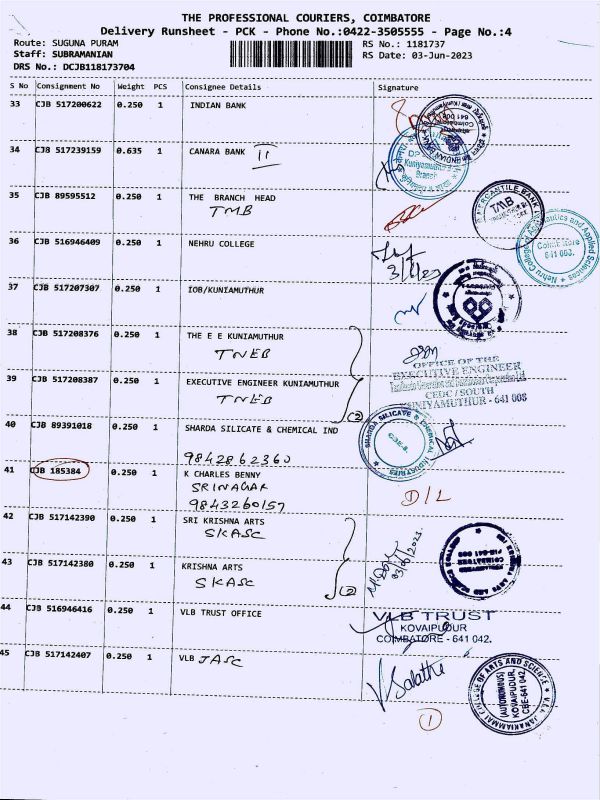 THE PROFESSIONAL COURIERS, COIMBATORE
Delivery Runsheet - PCK - Phone No.:0422-3505555 - Page No.:4
Route: SUGUNA PURAM RS No.: 1181737
Staff: SUBRAMANIAN RS Date: 03-Jun-2023
DRS No.: DCJB118173704
S No Consignment No Weight PCS Consignee Details Signature
33 CJB 517200622 0.250 1 INDIAN BANK
34 CJB 517239159 0.635 1 CANARA BANK II
35 CJB 89595512 0.250 1 THE BRANCH HEAD
TMB
36 CJB 516946409 0.250 1 NEHRU COLLEGE
37 CJB 517207307 0.250 1 IOB/KUNIAMUTHUR
38 CJB 517208376 0.250 1 THE E E KUNIAMUTHUR
TNEB
OFFICE OF THE
EXECUTIVE ENGINEER
39 CJB 517208387 0.250 1 EXECUTIVE ENGINEER KUNIAMUTHUR
TNEB
CEDC / SOUTH
KUNIYAMUTHUR - 641 008
(2)
40 CJB 89391018 0.250 1 SHARDA SILICATE & CHEMICAL IND
SHARDA SILICATE & CHEMICAL INDUSTRIES
9842862360
41 CJB 185384 0.250 1 K CHARLES BENNY
SRINAGAR
9843260157
D/L
42 CJB 517142390 0.250 1 SRI KRISHNA ARTS
SKASC
03/06/2023
43 CJB 517142380 0.250 1 KRISHNA ARTS
SKASC
(2)
44 CJB 516946416 0.250 1 VLB TRUST OFFICE
VLB TRUST
KOVAIPUDUR
COIMBATORE - 641 042.
45 CJB 517142407 0.250 1 VLB JASC
V.L.B. JANAKIAMMAL COLLEGE OF ARTS AND SCIENCE
(AUTONOMOUS)
KOVAIPUDUR,
CBE-641 042
1